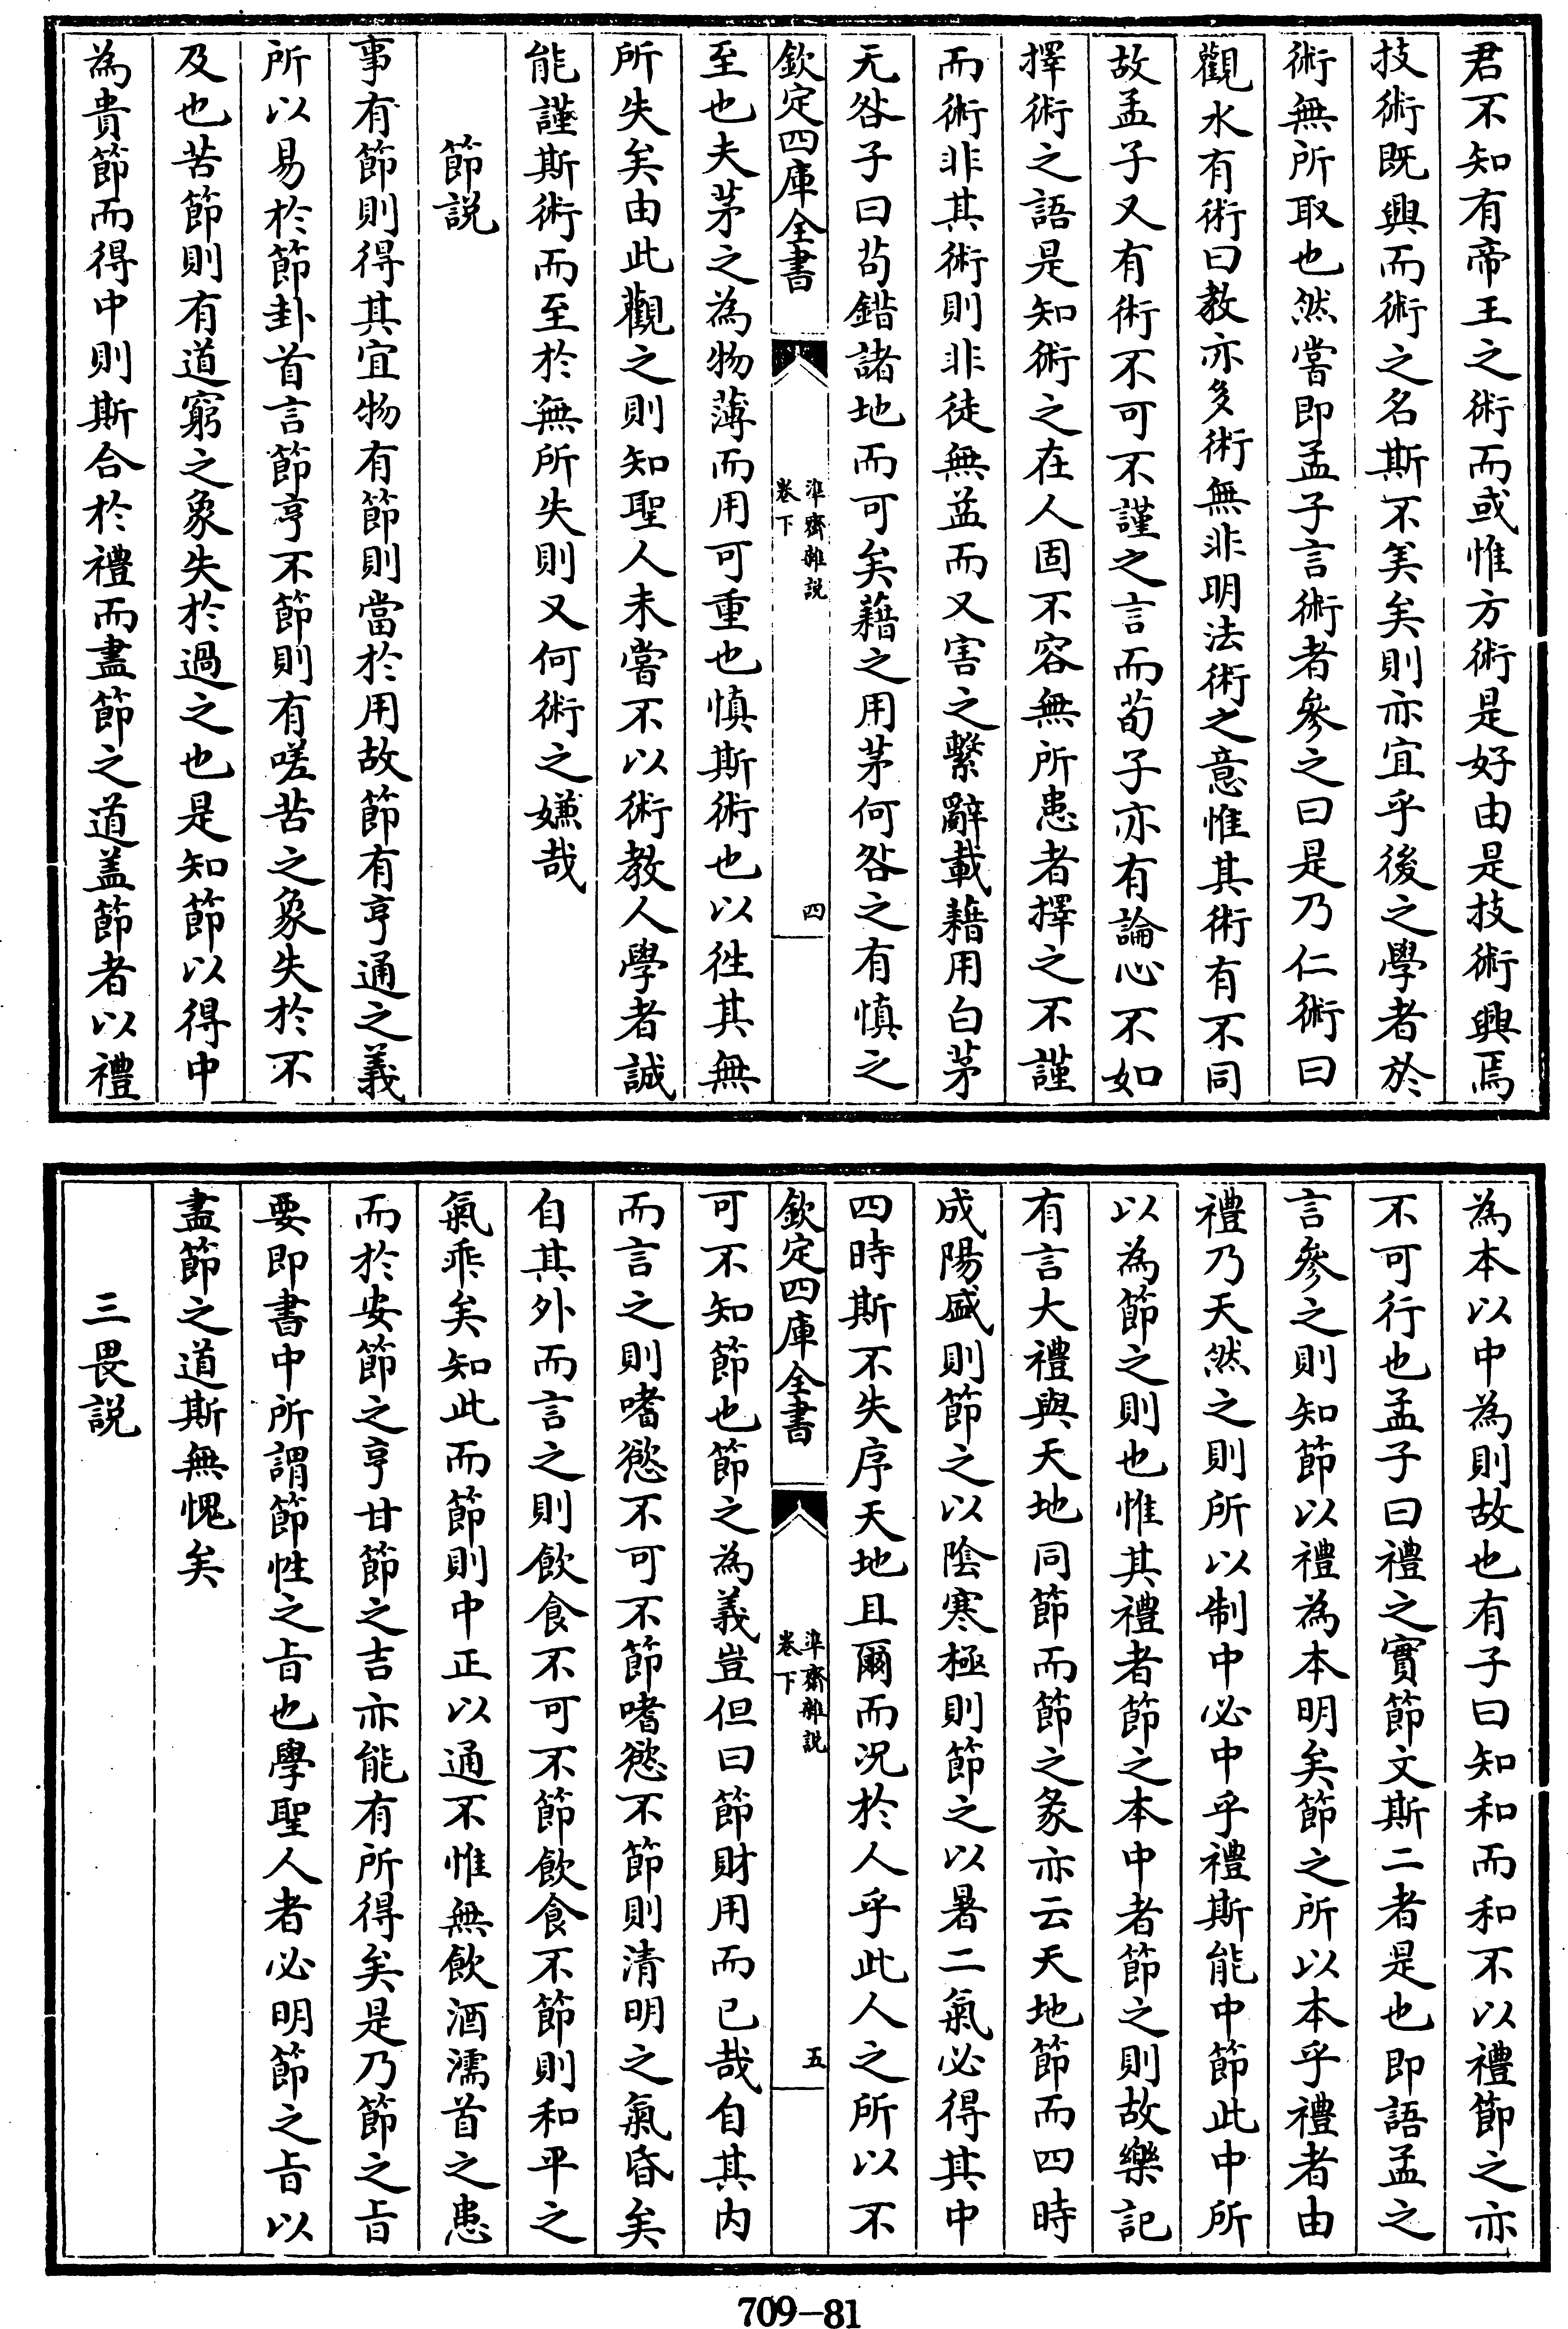 君不知有帝王之術而或惟方術是好由是技術興焉
技術既興而術之名斯不美矣則亦宜乎後之學者於
術無所取也然嘗即孟子言術者參之曰是乃仁術曰
觀水有術曰教亦多術無非明法術之意惟其術有不同
故孟子又有術不可不謹之言而荀子亦有論心不如
擇術之語是知術之在人固不容無所患者擇之不謹
而術非其術則非徒無益而又害之繫辭載藉用白茅
无咎子曰苟錯諸地而可矣藉之用茅何咎之有慎之
欽定四庫全書
準齋雜說
卷下
四
至也夫茅之為物薄而用可重也慎斯術也以徃其無
所失矣由此觀之則知聖人未嘗不以術教人學者誠
能謹斯術而至於無所失則又何術之嫌哉
節説
事有節則得其宜物有節則當於用故節有亨通之義
所以易於節卦首言節亨不節則有嗟苦之象失於不
及也苦節則有道窮之象失於過之也是知節以得中
為貴節而得中則斯合於禮而盡節之道盖節者以禮
為本以中為則故也有子曰知和而和不以禮節之亦
不可行也孟子曰禮之實節文斯二者是也即語孟之
言參之則知節以禮為本明矣節之所以本乎禮者由
禮乃天然之則所以制中必中乎禮斯能中節此中所
以為節之則也惟其禮者節之本中者節之則故樂記
有言大禮與天地同節而節之彖亦云天地節而四時
成陽盛則節之以陰寒極則節之以暑二氣必得其中
四時斯不失序天地且爾而况於人乎此人之所以不
欽定四庫全書
準齋雜說
卷下
五
可不知節也節之為義豈但曰節財用而已哉自其内
而言之則嗜慾不可不節嗜慾不節則清明之氣昏矣
自其外而言之則飲食不可不節飲食不節則和平之
氣乖矣知此而節則中正以通不惟無飲酒濡首之患
而於安節之亨甘節之吉亦能有所得矣是乃節之㫖
要即書中所謂節性之㫖也學聖人者必明節之㫖以
盡節之道斯無愧矣
三畏説
709-81